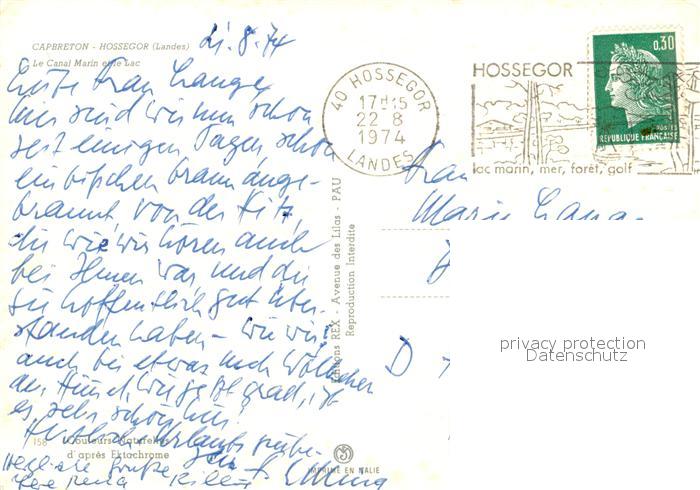 21.8.74
CAPBRETON - HOSSEGOR (Landes)
Le Canal Marin et le Lac
40 HOSSEGOR
17H15
22-8
1974
LANDES
HOSSEGOR
lac marin, mer, forêt, golf
0,30
POSTES
REPUBLIQUE FRANÇAISE
Frau
Marie
D
Liebe Frau
hier sind wir nun schon
seit einigen Tagen, schon
ein bißchen braun ange-
brannt von der Hitze,
die wie wir hören auch
bei Ihnen war und die
Sie hoffentlich gut über-
standen haben - wie wir,
auch bei etwas
der Himmel, wie jetzt grad, ist
es sehr schön hier!
Urlaubsgrüße
Herzliche Grüße
Editions REX - Avenue des Lilas - PAU
Reproduction Interdite
158 Couleurs Naturelles
d'après Ektachrome
IMPRIMÉ EN ITALIE
privacy protection
Datenschutz